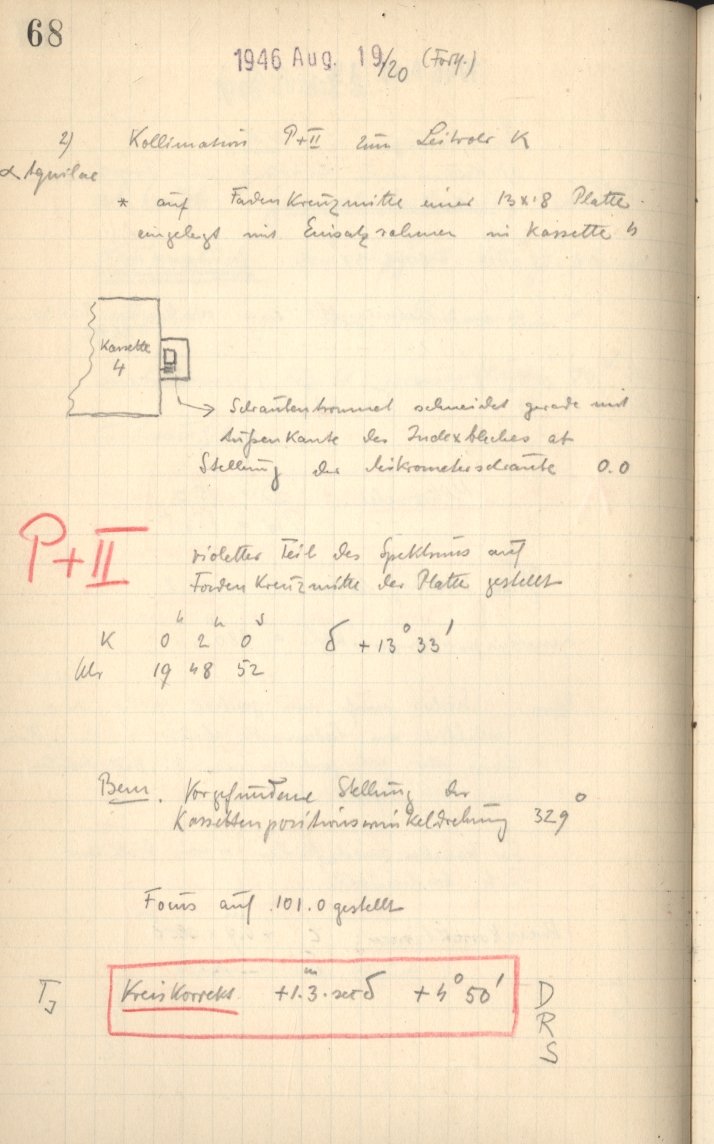 68
1946 Aug. 19/20 (Forts.)
2) Kollimation P+II zum Leitrohr K
α Aquilae
* auf Fadenkreuzmitte einer 13x18 Platte
eingelegt mit Einsatzrahmen in Kassette 4
Kassette
4
Schraubentrommel schneidet gerade mit
Außenkante des Indexbleches ab
Stellung der Mikrometerschraube 0.0
P+II
violetter Teil des Spektrums auf
Fadenkreuzmitte der Platte gestellt
K 0h 2m 0s δ +13° 33'
Uhr 19 48 52
Bem. Vorgefundene Stellung der
Kassettenpositionswinkeldrehung 329°
Focus auf 101.0 gestellt
Kreiskorrekt. +1.3m sec δ +4° 50' D
R
S